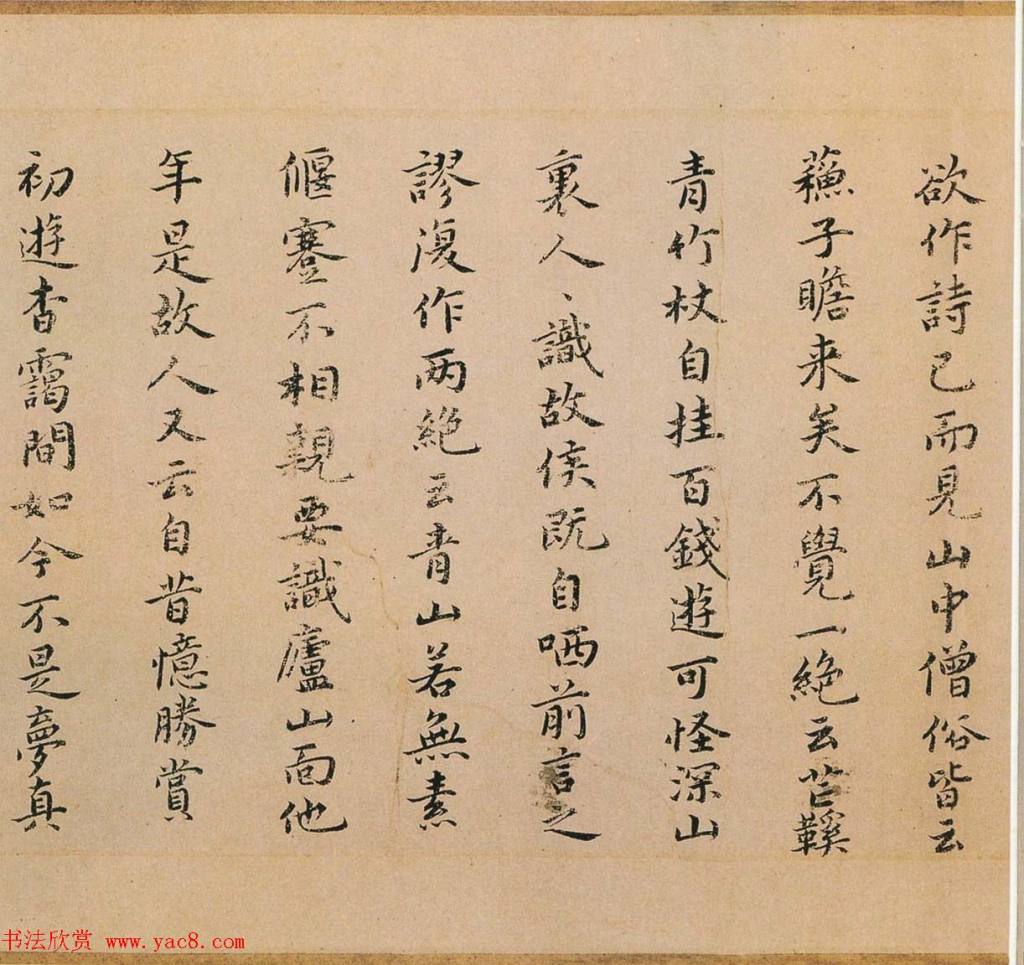 欲作詩已而見山中僧俗皆云
蘓子瞻来矣不覺一絶云芒鞵
青竹杖自挂百錢遊可怪深山
裏人〻識故侯既自哂前言之
謬復作兩絶云青山若無素
偃蹇不相親要識廬山面他
年是故人又云自昔憶勝賞
初遊杳靄間如今不是夢真
书法欣赏 www.yac8.com